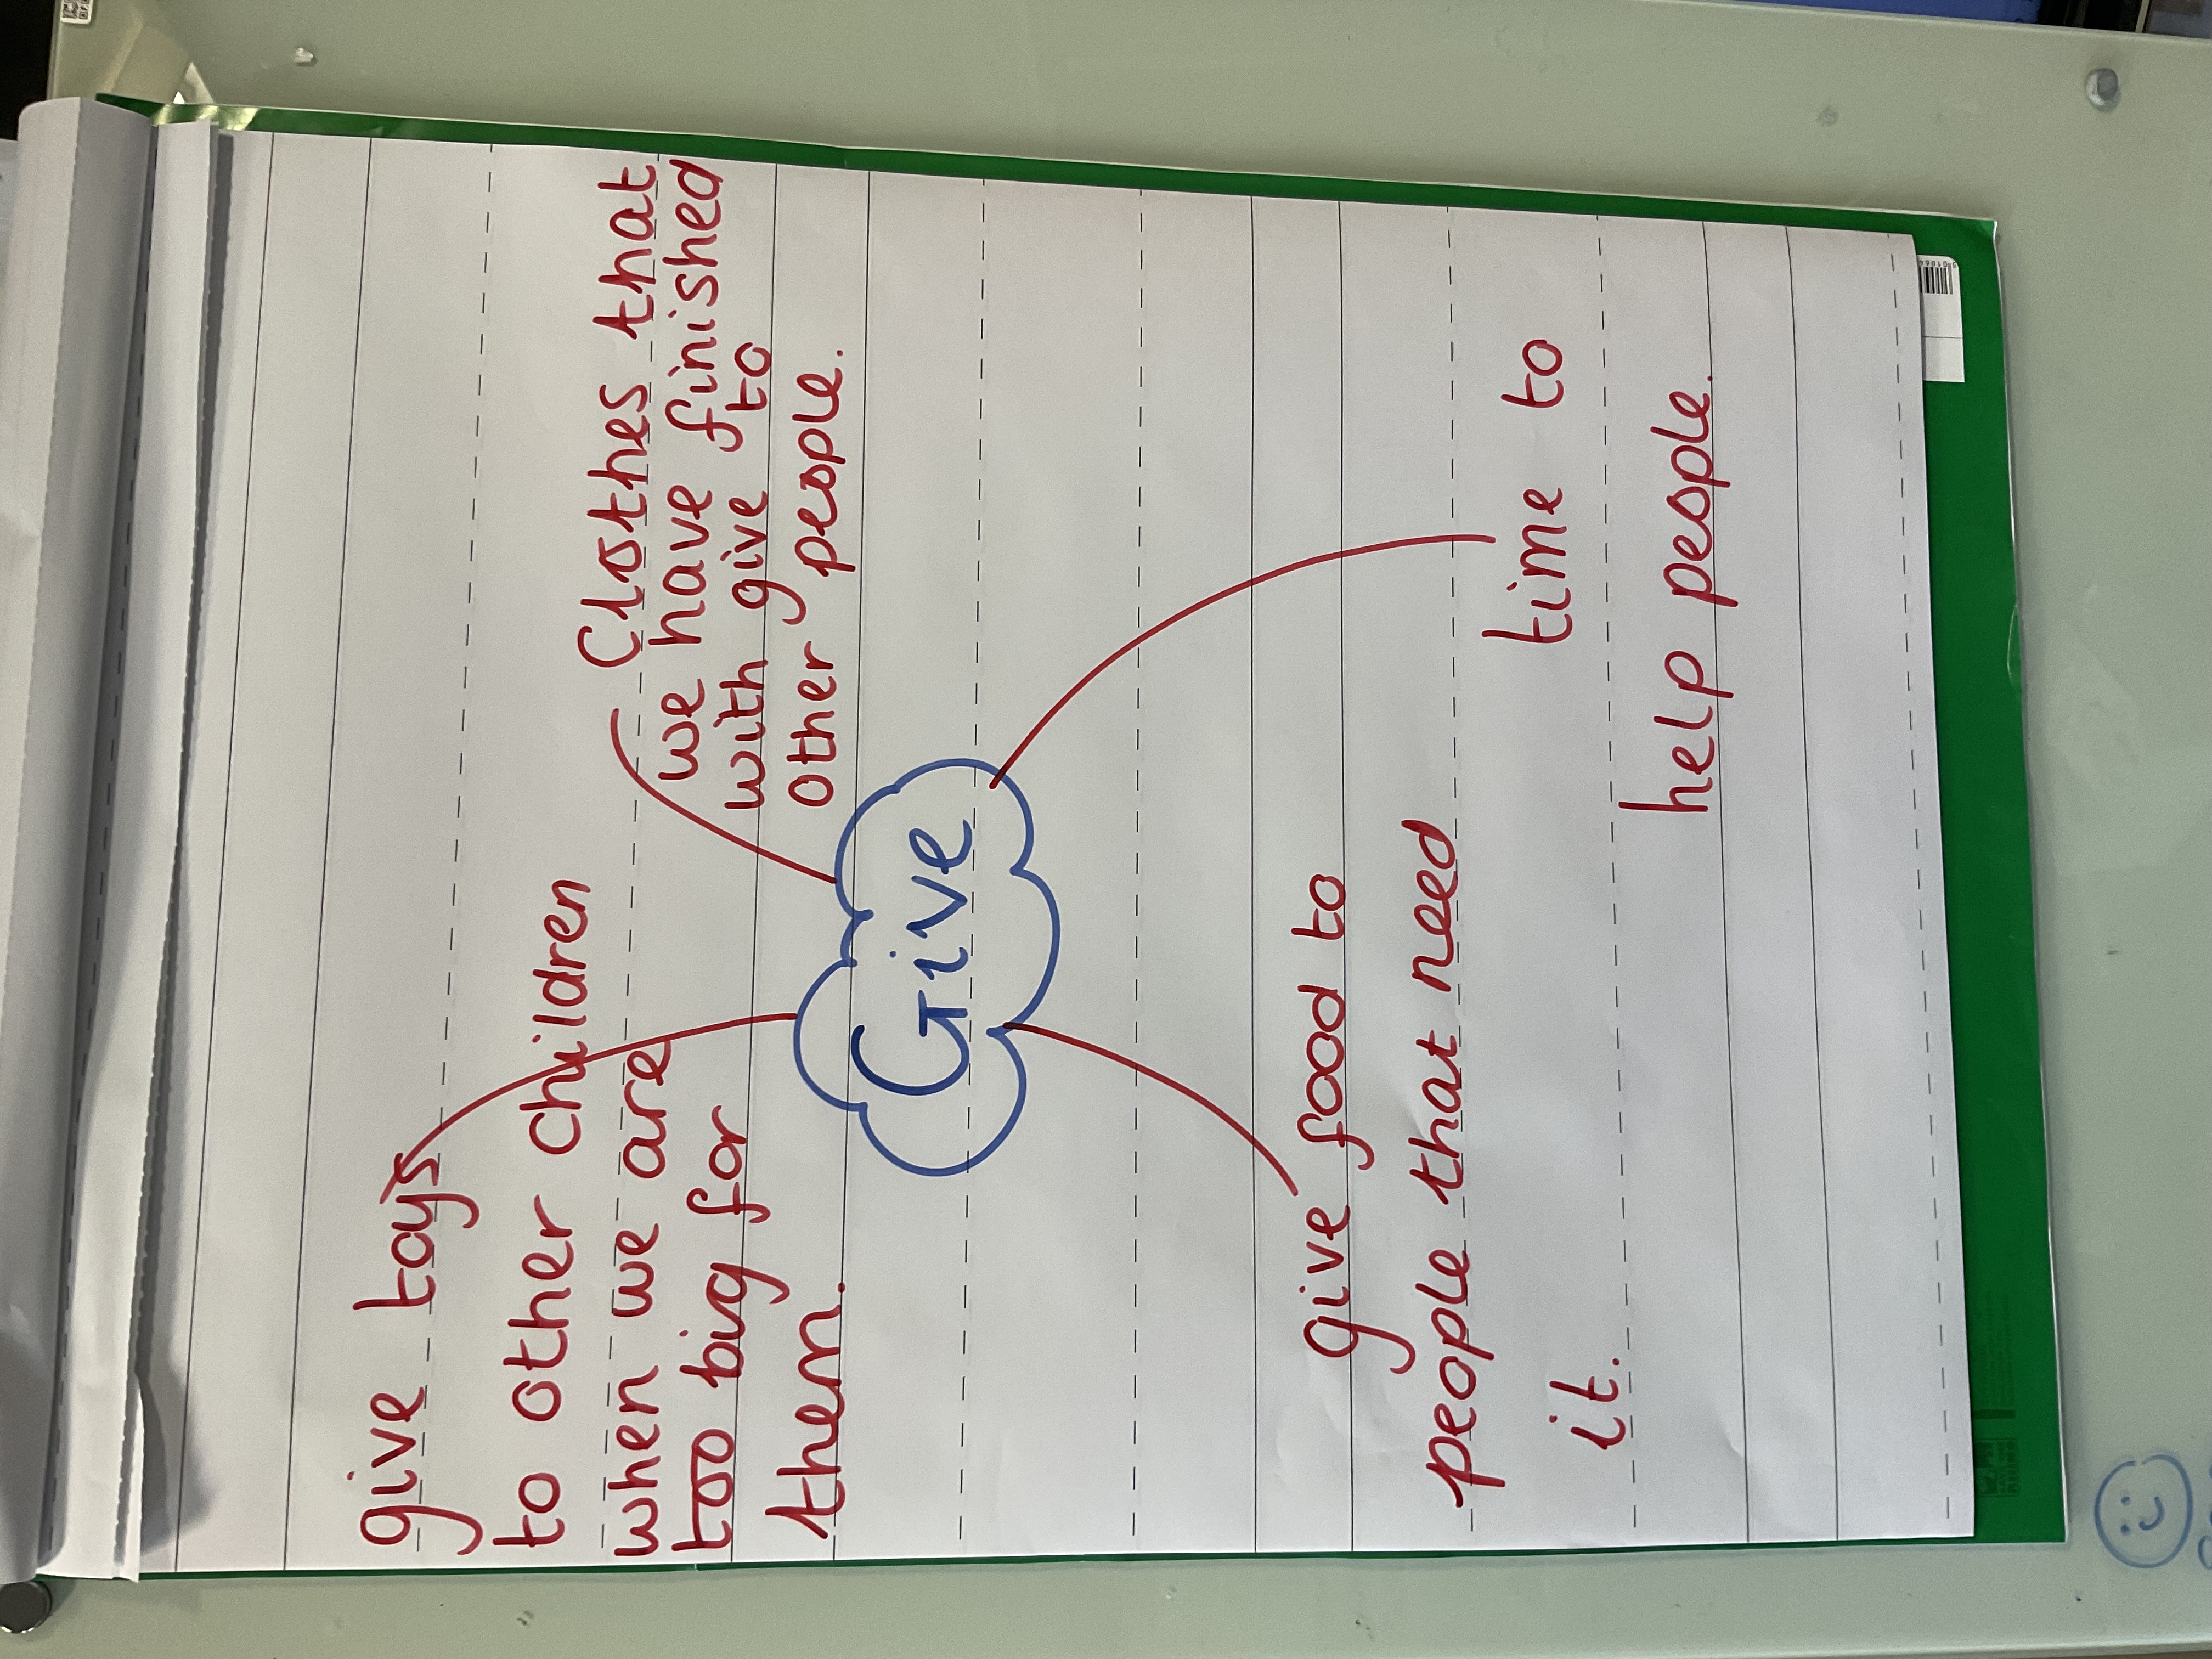 give toys
to other children
when we are
too big for
them.
Clothes that
we have finished
with give to
other people.
Give
give food to
people that need
it.
time to
help people.